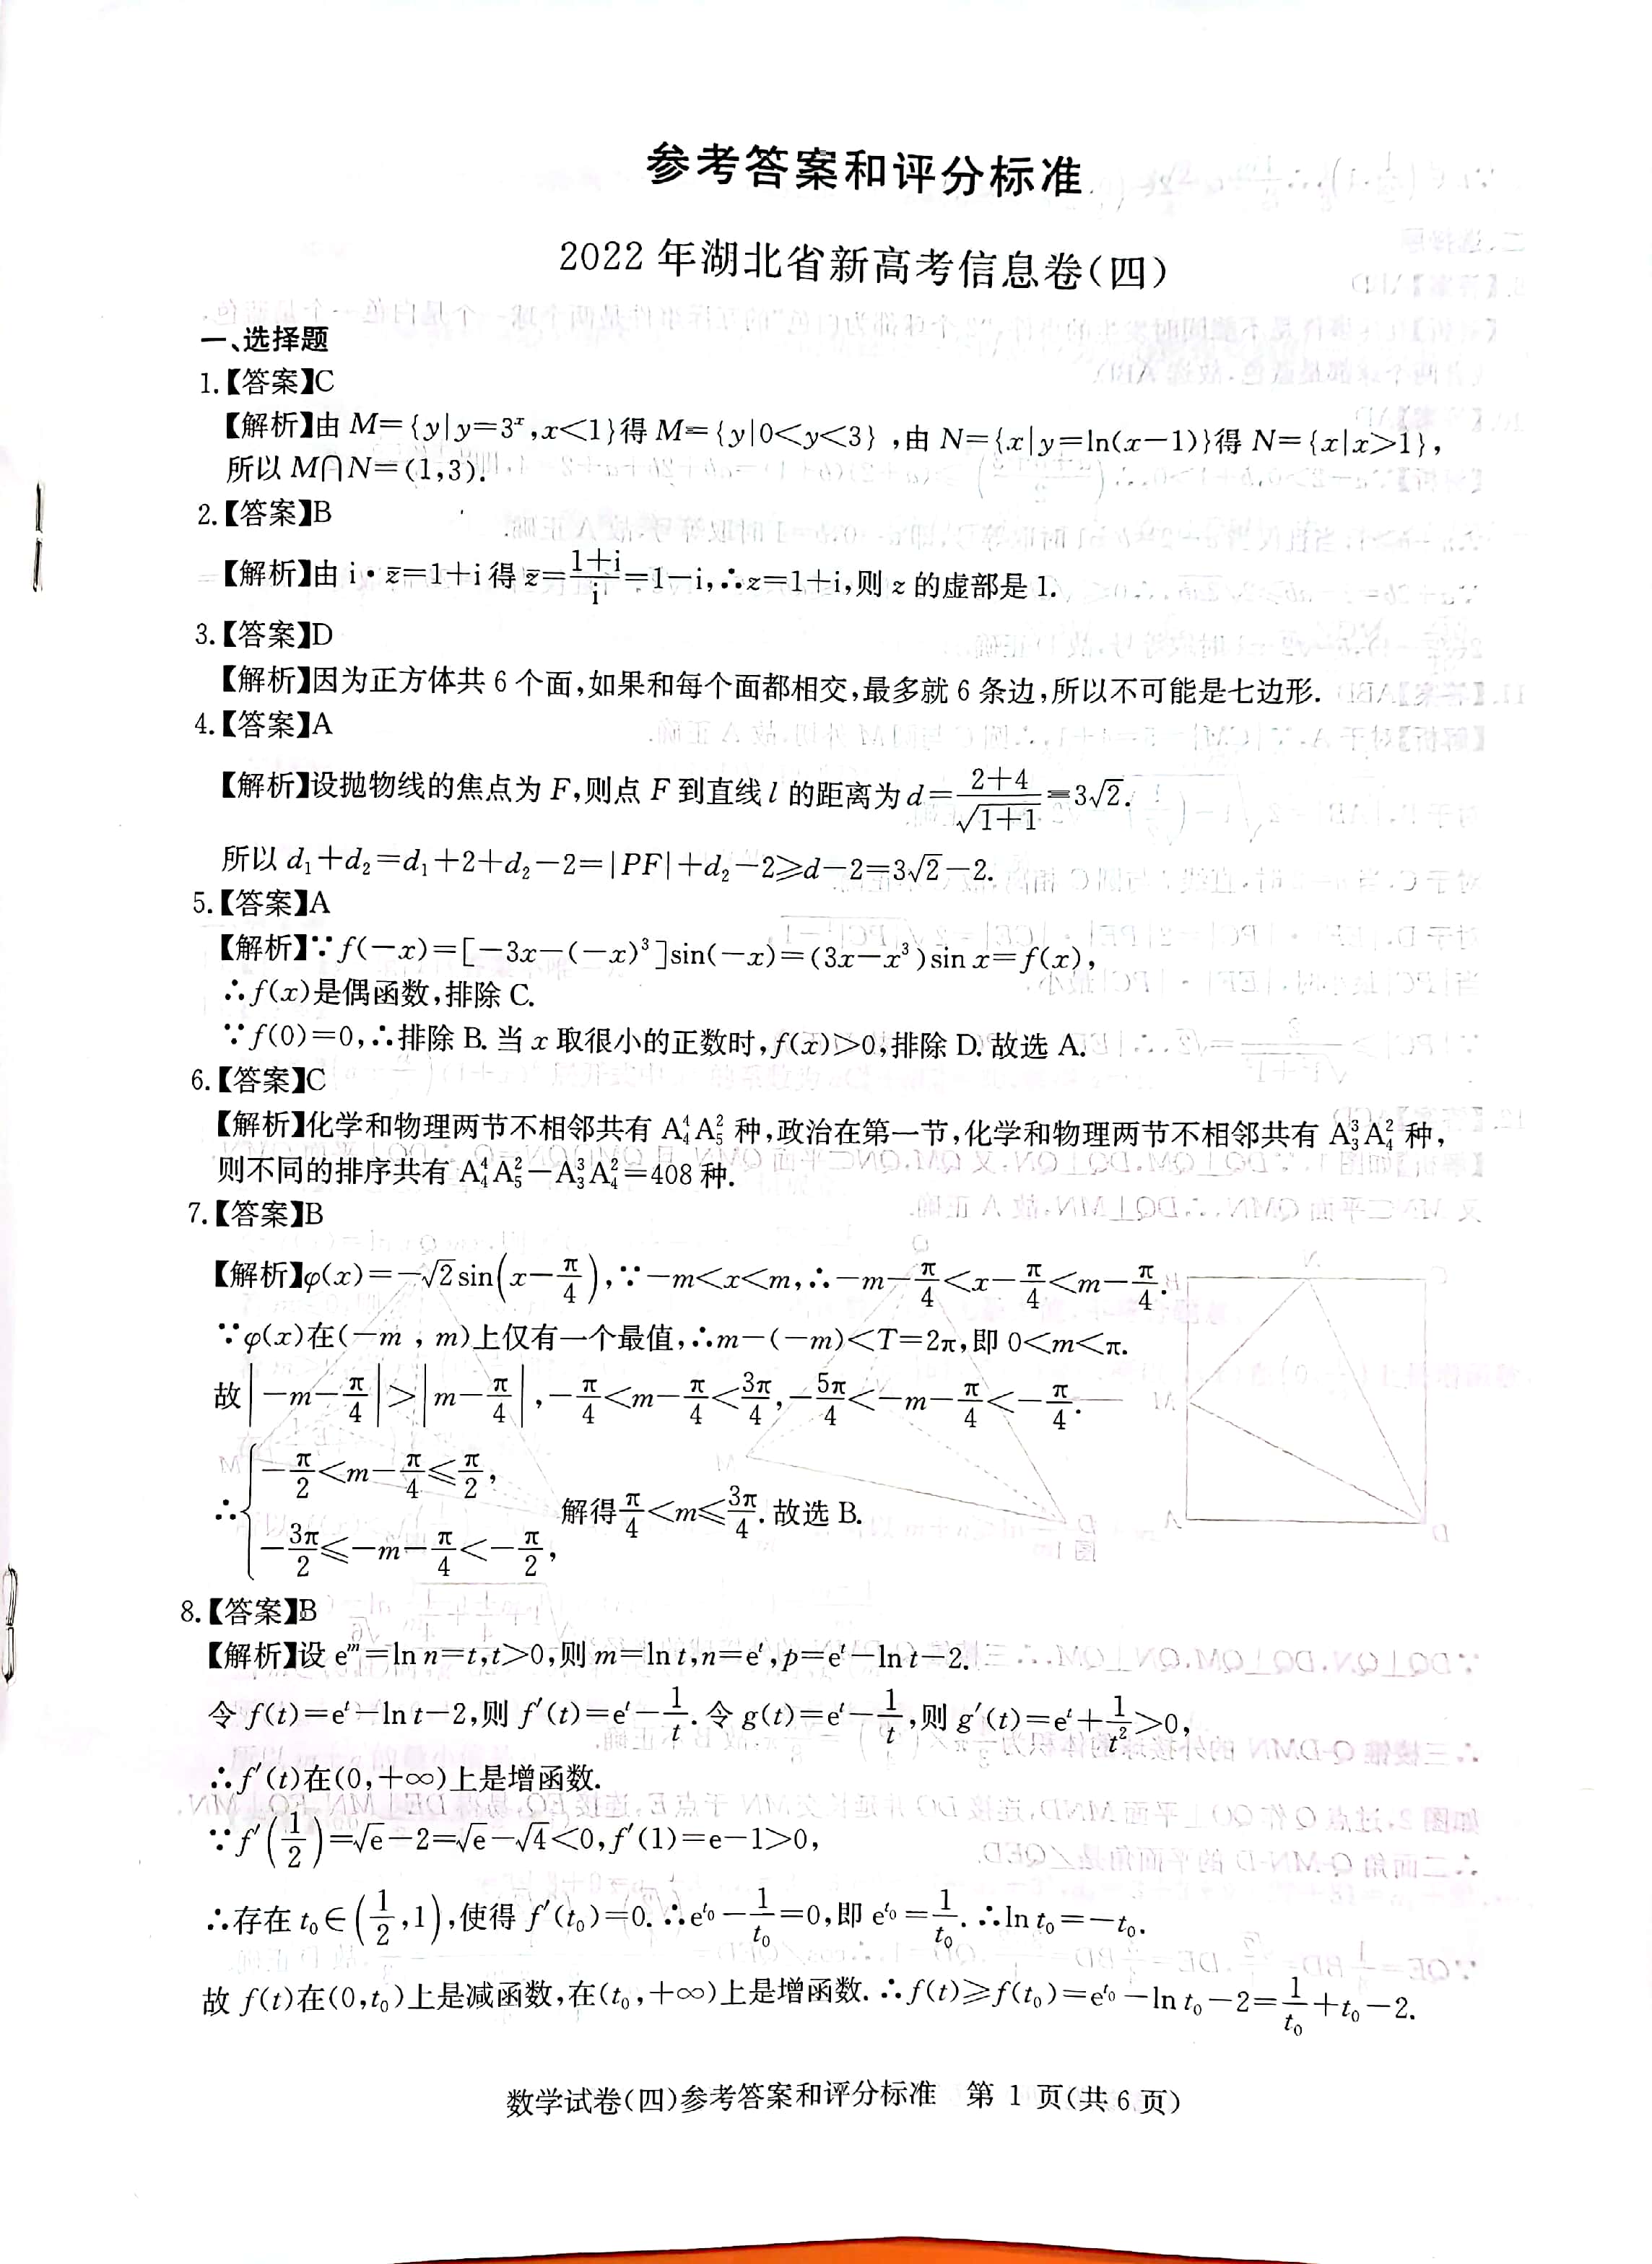 参考答案和评分标准
2022年湖北省新高考信息卷(四)
一、选择题
1.【答案】C
【解析】由M={y|y=3ˣ,x<1}得M={y|0<y<3},由N={x|y=ln(x-1)}得N={x|x>1},
所以M∩N=(1,3).
2.【答案】B
【解析】由i·z̄=1+i得z̄=(1+i)/i=1-i,∴z=1+i,则z的虚部是1.
3.【答案】D
【解析】因为正方体共6个面,如果和每个面都相交,最多就6条边,所以不可能是七边形.
4.【答案】A
【解析】设抛物线的焦点为F,则点F到直线l的距离为d=(2+4)/√(1+1)=3√2.
所以d₁+d₂=d₁+2+d₂-2=|PF|+d₂-2≥d-2=3√2-2.
5.【答案】A
【解析】∵f(-x)=[-3x-(-x)³]sin(-x)=(3x-x³)sin x=f(x),
∴f(x)是偶函数,排除C.
∵f(0)=0,∴排除B.当x取很小的正数时,f(x)>0,排除D.故选A.
6.【答案】C
【解析】化学和物理两节不相邻共有A₄⁴A₅²种,政治在第一节,化学和物理两节不相邻共有A₃³A₄²种,
则不同的排序共有A₄⁴A₅²-A₃³A₄²=408种.
7.【答案】B
【解析】φ(x)=-√2sin(x-π/4),∵-m<x<m,∴-m-π/4<x-π/4<m-π/4.
∵φ(x)在(-m,m)上仅有一个最值,∴m-(-m)<T=2π,即0<m<π.
故|-m-π/4|>|m-π/4|,-π/4<m-π/4<3π/4,-5π/4<-m-π/4<-π/4.
∴{-π/2<m-π/4≤π/2,
-3π/2≤-m-π/4<-π/2, 解得π/4<m≤3π/4.故选B.
8.【答案】B
【解析】设eᵐ=ln n=t,t>0,则m=ln t,n=eᵗ,p=eᵗ-ln t-2.
令f(t)=eᵗ-ln t-2,则f′(t)=eᵗ-1/t.令g(t)=eᵗ-1/t,则g′(t)=eᵗ+1/t²>0,
∴f′(t)在(0,+∞)上是增函数.
∵f′(1/2)=√e-2=√e-√4<0,f′(1)=e-1>0,
∴存在t₀∈(1/2,1),使得f′(t₀)=0.∴e^t₀-1/t₀=0,即e^t₀=1/t₀.∴ln t₀=-t₀.
故f(t)在(0,t₀)上是减函数,在(t₀,+∞)上是增函数.∴f(t)≥f(t₀)=e^t₀-ln t₀-2=1/t₀+t₀-2.
数学试卷(四)参考答案和评分标准 第1页(共6页)